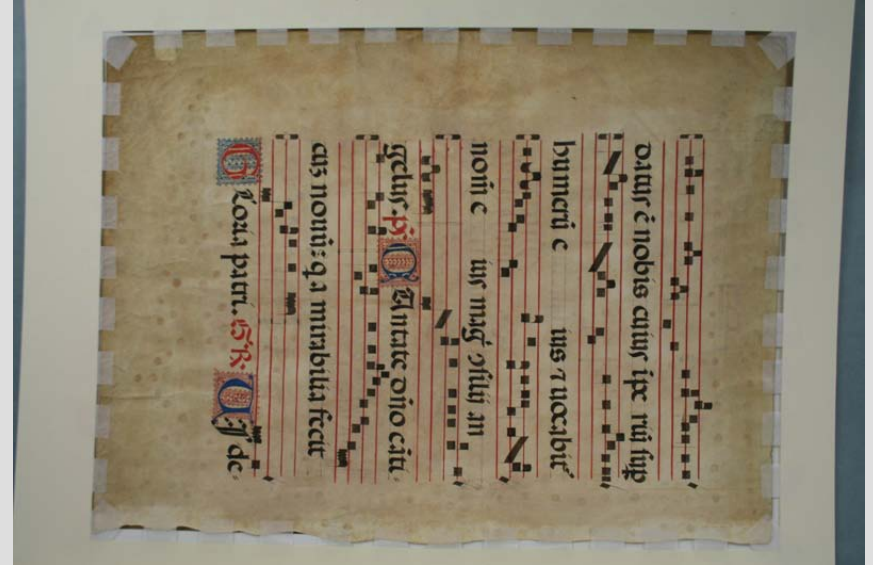 datus ē nobis cuius ip̄e riū sup̄
humerū e ius ⁊ uocabit᷒
nom̄ e ius mag̃ ↄsilij an
gelus. p̄s CAntate dn̄o cāti
cuz nouū: q a mirabilia fecit
Gloria patri. de